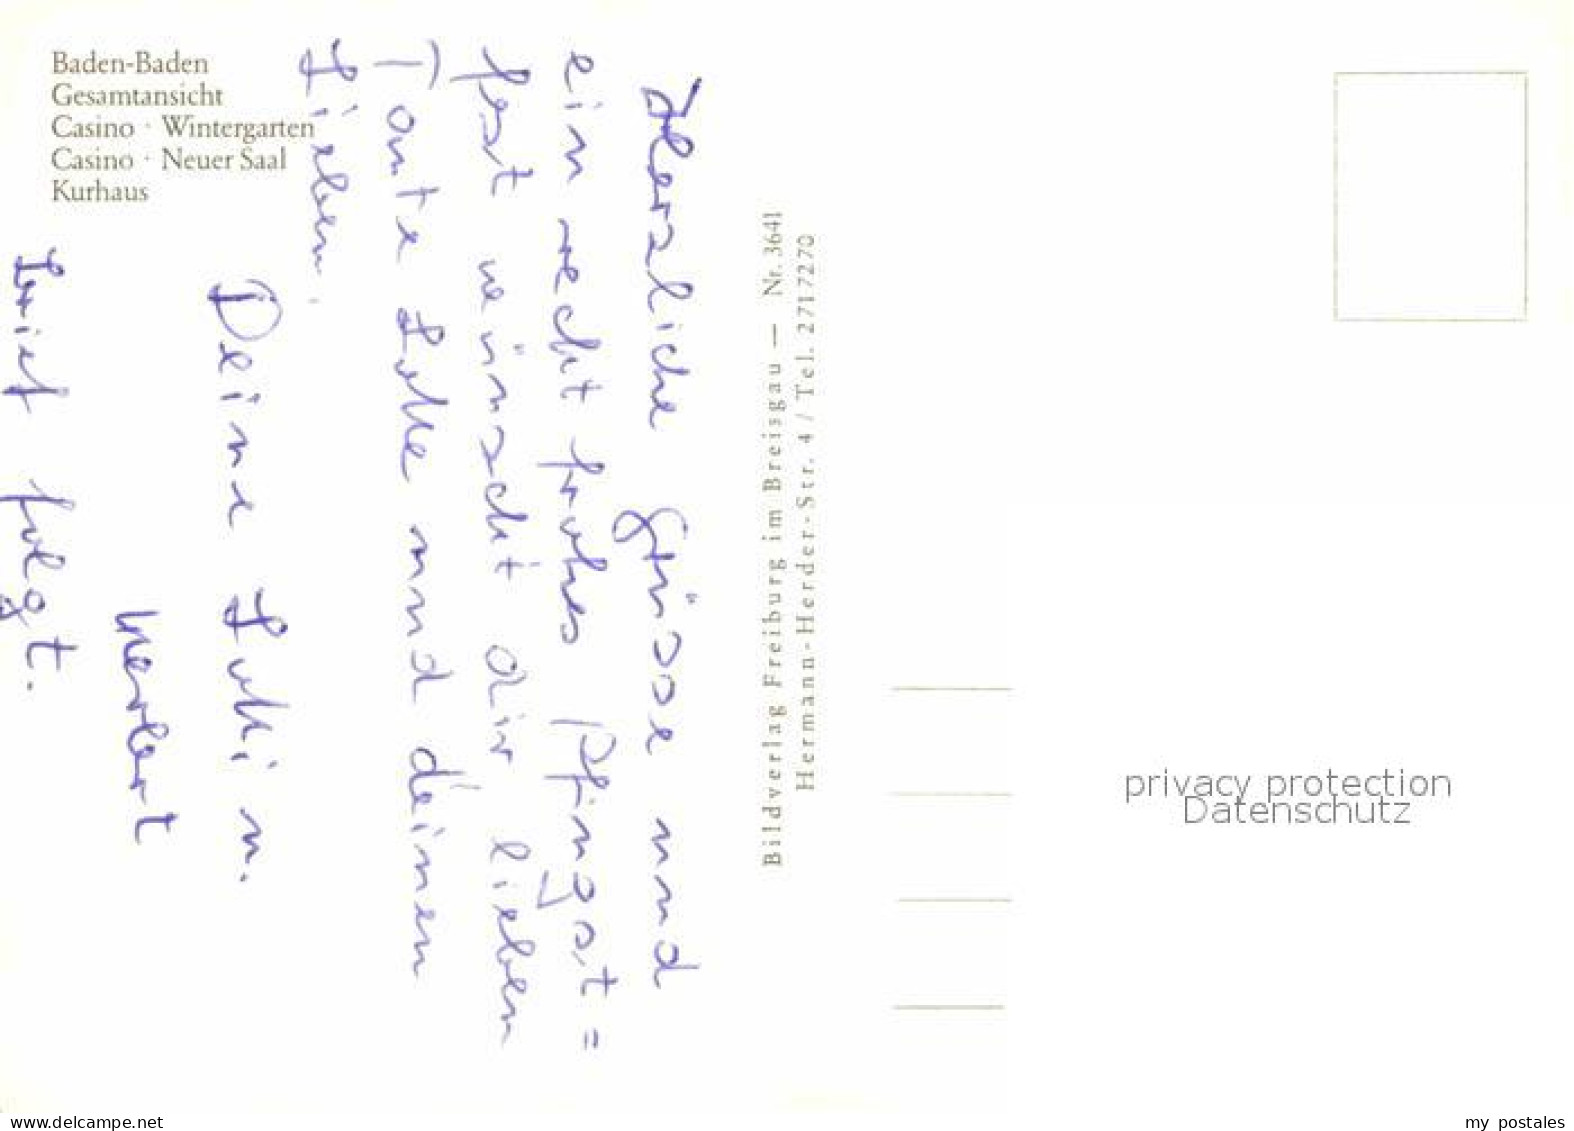 Baden-Baden
Gesamtansicht
Casino · Wintergarten
Casino · Neuer Saal
Kurhaus
Herzliche Grüsse und
ein recht frohes Pfingst=
fest wünscht dir lieben
Tante und deinen
Lieben.
Deine u.
Brief folgt.
Bildverlag Freiburg im Breisgau — Nr. 3641
Hermann-Herder-Str. 4 / Tel. 2717270
privacy protection
Datenschutz
www.delcampe.net
my_postales